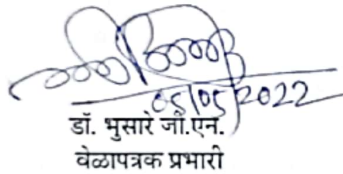 05/05/2022
डॉ. भुसारे जी.एन.
वेळापत्रक प्रभारी